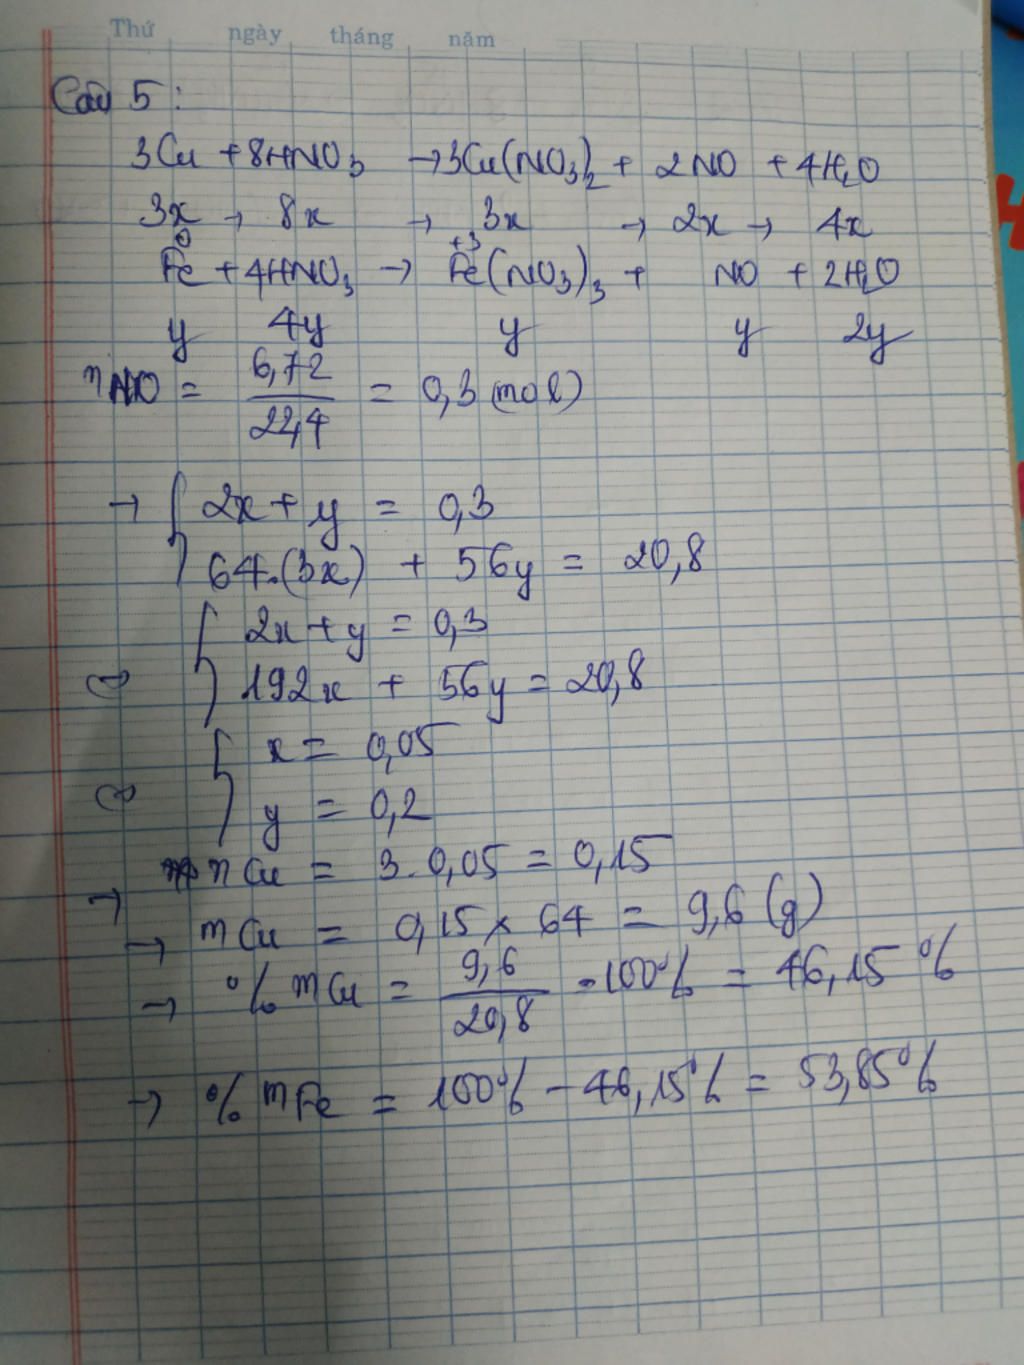 Thứ ngày tháng năm
Câu 5 :
3Cu + 8HNO₃ → 3Cu(NO₃)₂ + 2NO + 4H₂O
3x → 8x → 3x → 2x → 4x
0 +3
Fe + 4HNO₃ → Fe(NO₃)₃ + NO + 2H₂O
y 4y y y 2y
nNO = 6,72 / 22,4 = 0,3 (mol)
→ { 2x + y = 0,3
64.(3x) + 56y = 20,8
{ 2x + y = 0,3
⇔ 192x + 56y = 20,8
{ x = 0,05
⇔ y = 0,2
→ nCu = 3.0,05 = 0,15
→ mCu = 0,15 × 64 = 9,6 (g)
→ % mCu = 9,6 / 20,8 . 100% = 46,15 %
→ % mFe = 100% - 46,15% = 53,85%